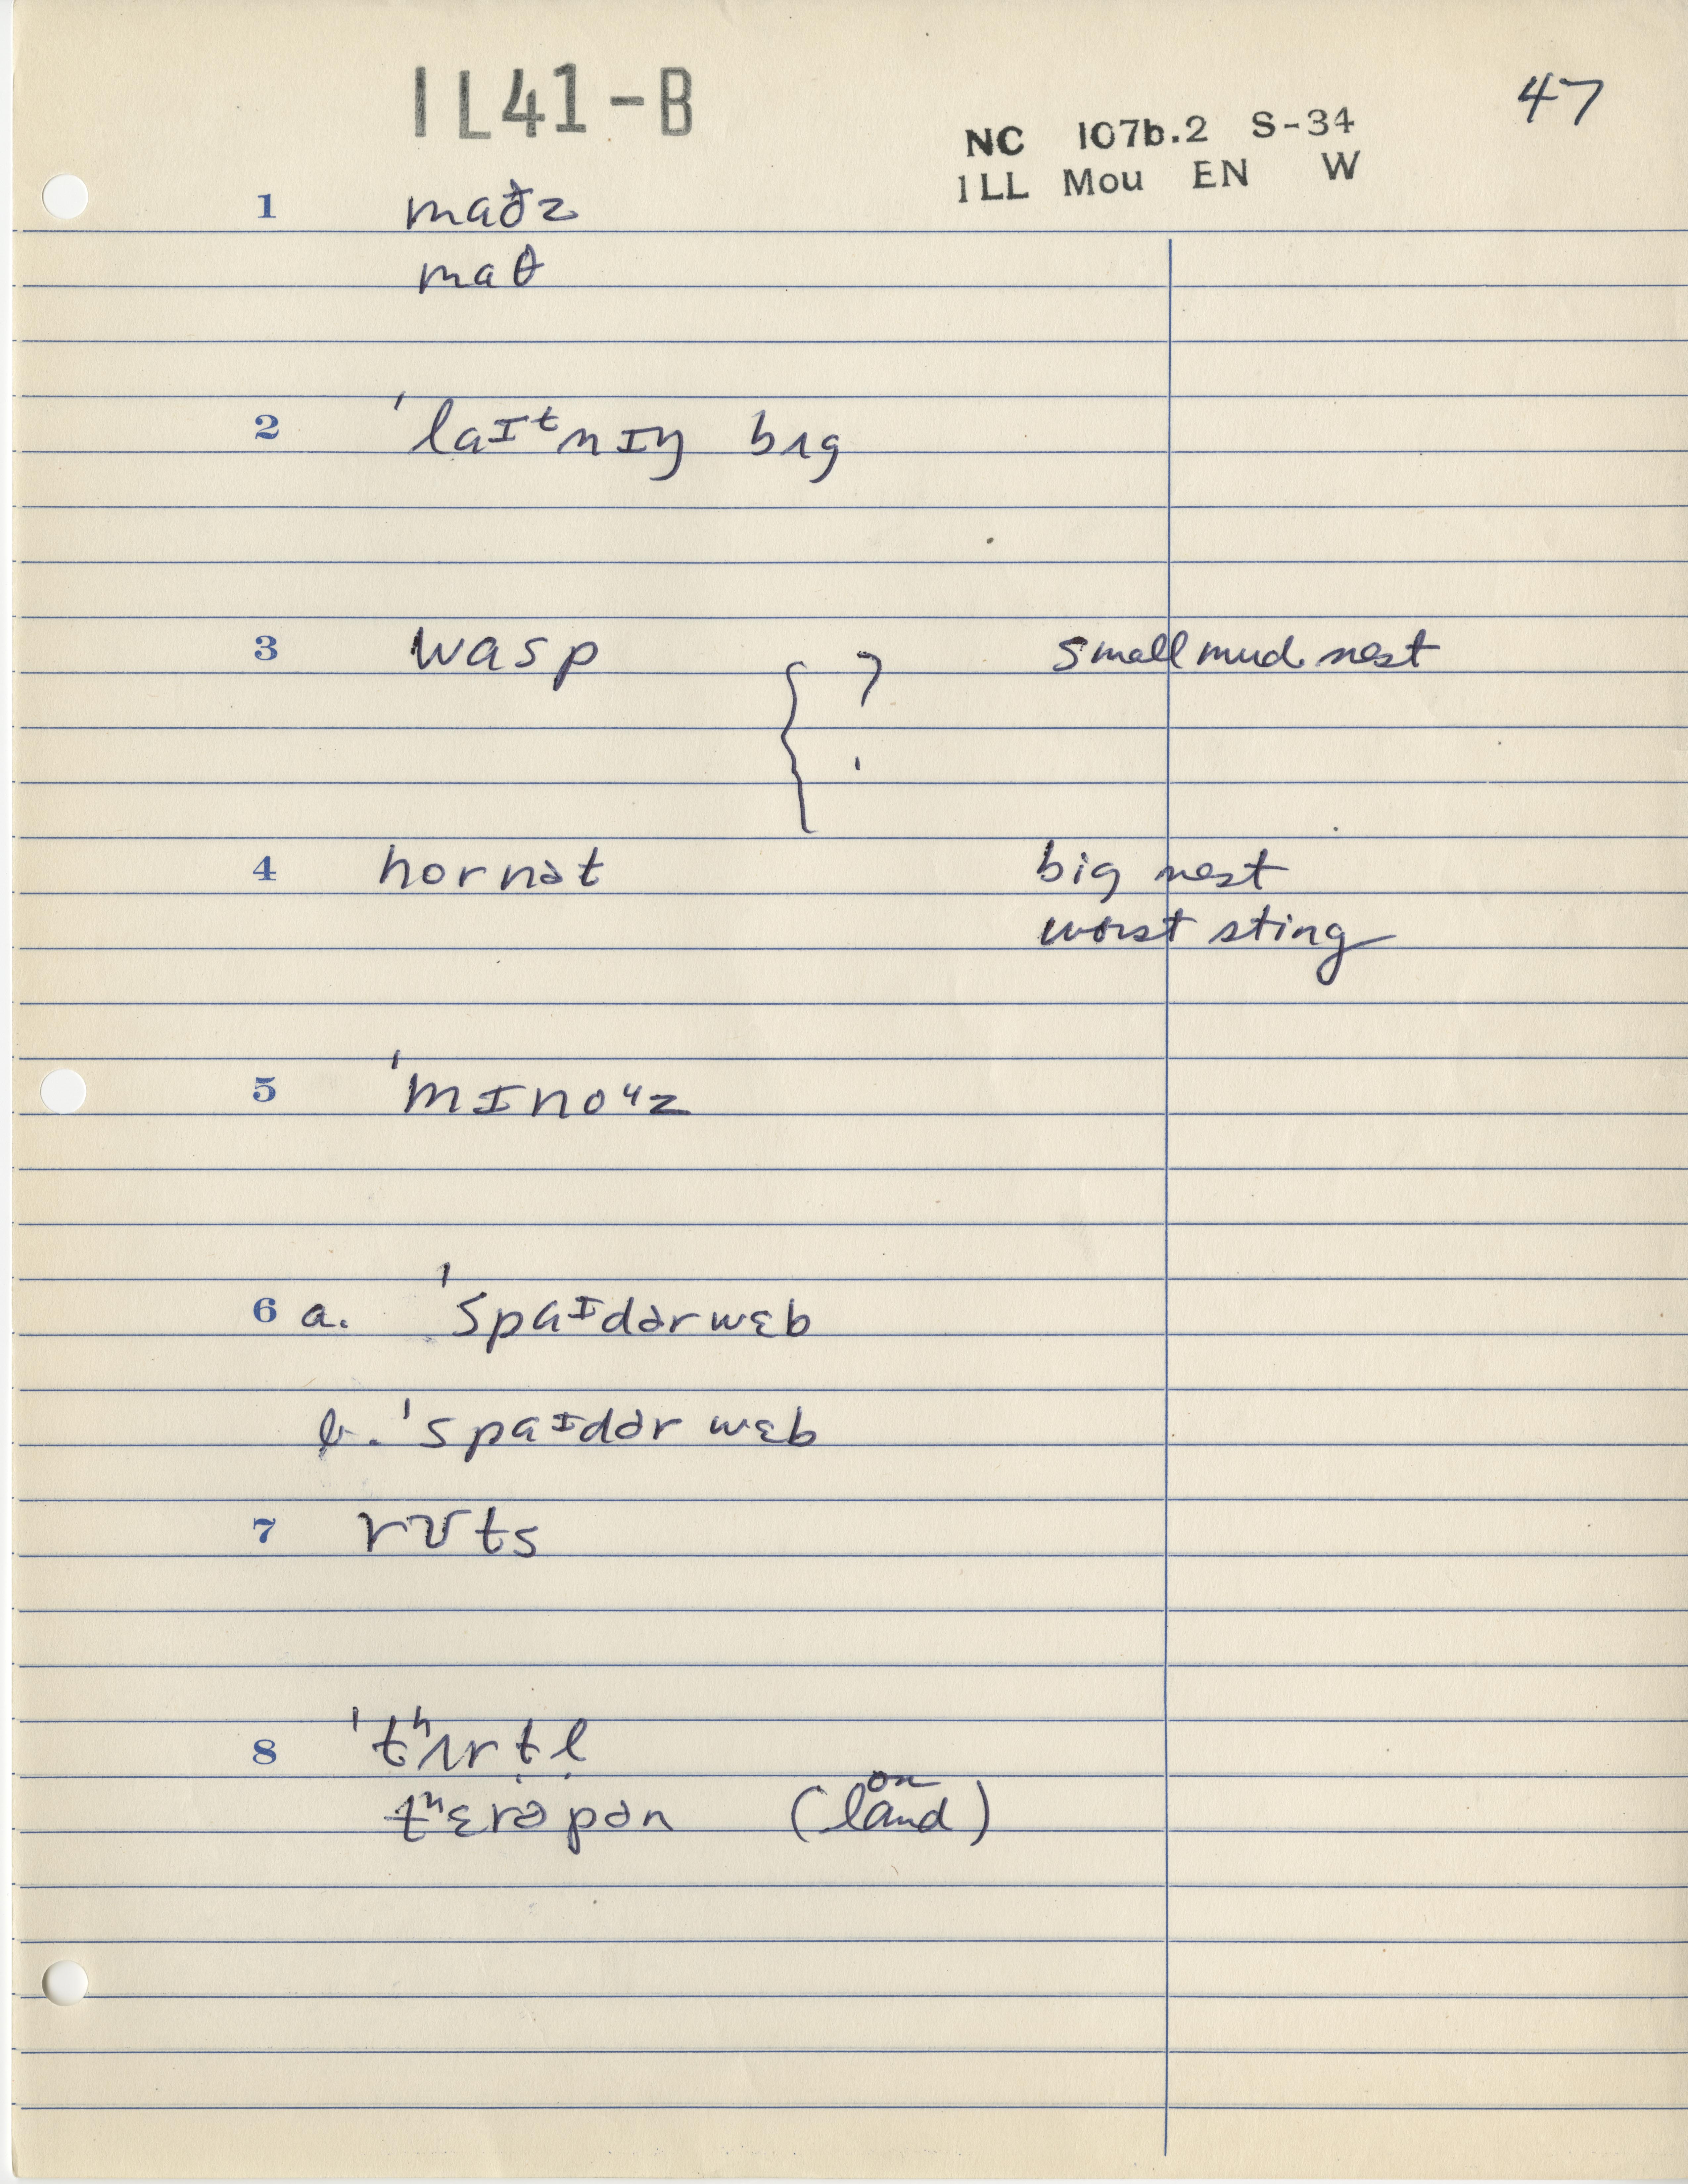 IL41-B
47
NC 107b.2 S-34
ILL Mou EN W
1 maðz
maθ
2 ˈlaɪᵗnɪŋ bɪg
3 wasp { ? small mud nest
4 hornət big nest
worst sting
5 ˈmɪnoᶸz
6 a. ˈspaᶦdərwɛb
b. ˈspaᶦdər wɛb
7 rʊts
8 ˈtʰʌrt̬l̩
tʰɛrəpən (on land)